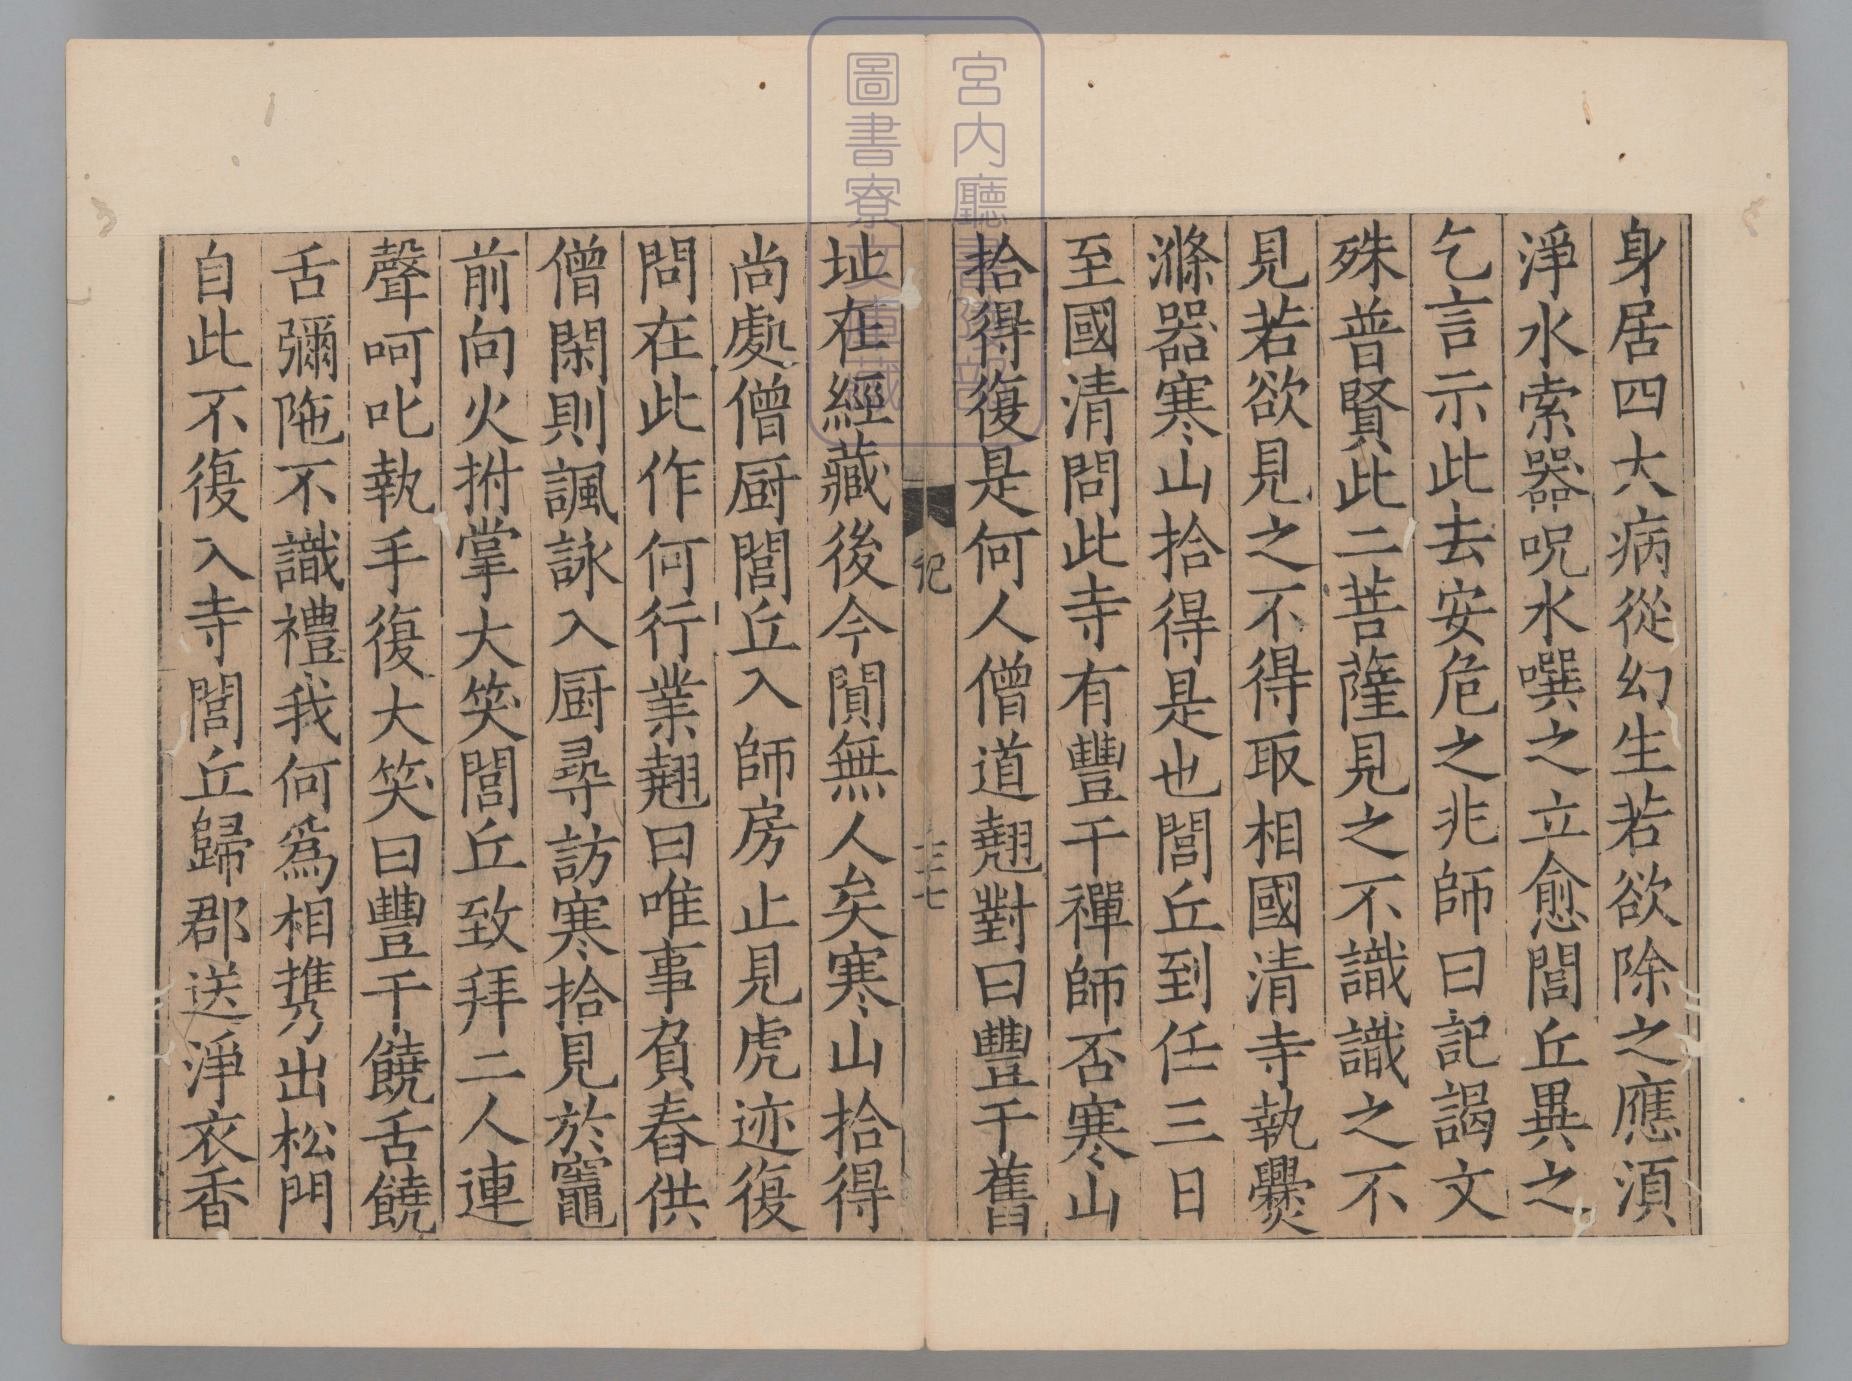 身居四大病從幻生若欲除之應湏
淨水索器呪水噀之立愈閭丘異之
乞言示此去安危之兆師曰記謁文
殊普賢此二菩薩見之不識識之不
見若欲見之不得取相國清寺執爨
滌器寒山拾得是也閭丘到任三日
至國清問此寺有豐干禪師否寒山
拾得復是何人僧道翹對曰豐干舊
記
三七
址在經藏後今閴無人矣寒山拾得
尚處僧厨閭丘入師房止見虎迹復
問在此作何行業翹曰唯事負舂供
僧閑則諷詠入厨尋訪寒拾見於竈
前向火拊掌大笑閭丘致拜二人連
聲呵叱執手復大笑曰豐干饒舌饒
舌彌陁不識禮我何爲相携出松門
自此不復入寺閭丘歸郡送淨衣香
宮内廳書陵部
圖書寮文庫藏